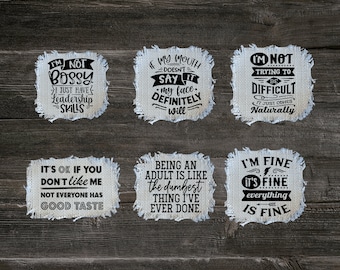 I'M NOT
Bossy
I JUST HAVE
Leadership
SKILLS
IF MY MOUTH
DOESN'T
SAY IT
my face
DEFINITELY
Will
I'M NOT
TRYING TO
BE
DIFFICULT
IT JUST COMES
Naturally
IT'S OK IF YOU
DON'T like ME
NOT EVERYONE HAS
GOOD TASTE
BEING AN
ADULT IS LIKE
the dumbest
THING I'VE
EVER DONE
I'M FINE
IT'S FINE
everything
IS FINE